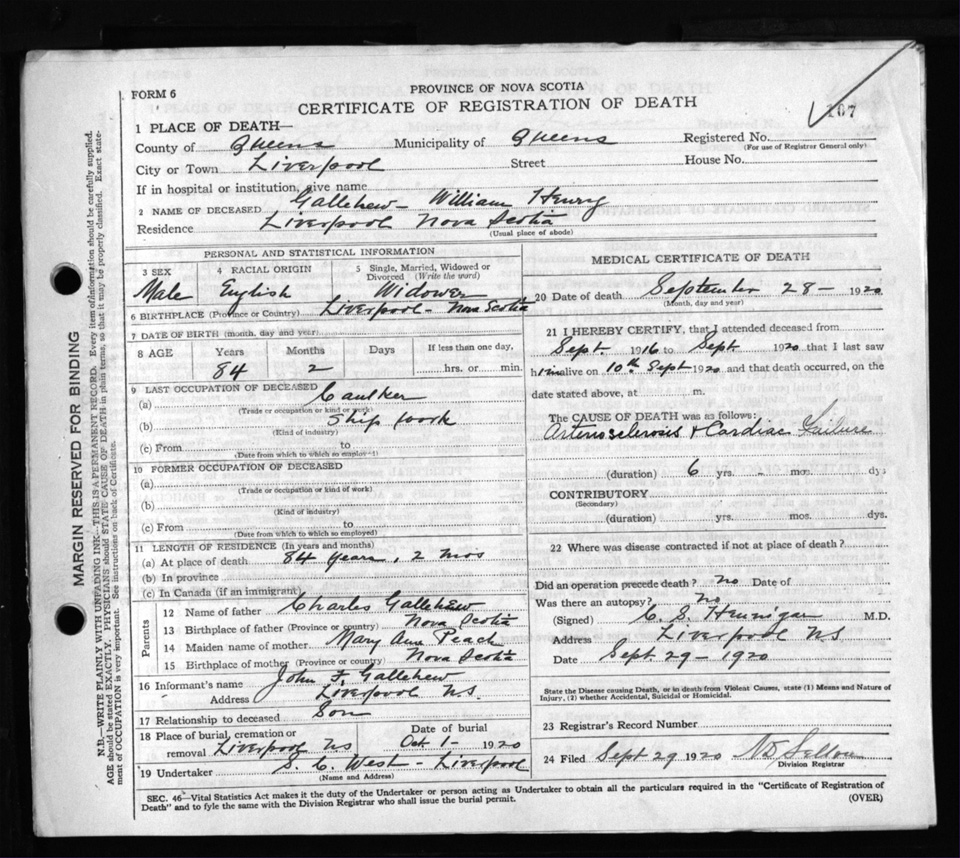 FORM 6
PROVINCE OF NOVA SCOTIA
CERTIFICATE OF REGISTRATION OF DEATH
107
1 PLACE OF DEATH—
County of Queens Municipality of Queens Registered No.
(For use of Registrar General only)
City or Town Liverpool Street House No.
If in hospital or institution, give name
2 NAME OF DECEASED Gallehew - William Henry
Residence Liverpool Nova Scotia
(Usual place of abode)
PERSONAL AND STATISTICAL INFORMATION
3 SEX 4 RACIAL ORIGIN 5 Single, Married, Widowed or Divorced (Write the word)
Male English Widower
6 BIRTHPLACE (Province or Country) Liverpool - Nova Scotia
7 DATE OF BIRTH (month, day and year)
8 AGE Years Months Days If less than one day,
84 2 hrs. or min.
9 LAST OCCUPATION OF DECEASED
(a) Caulker
(Trade or occupation or kind of work)
(b) Ship work
(Kind of industry)
(c) From to
(Date from which to which so employed)
10 FORMER OCCUPATION OF DECEASED
(a)
(Trade or occupation or kind of work)
(b)
(Kind of industry)
(c) From to
(Date from which to which so employed)
11 LENGTH OF RESIDENCE (In years and months)
(a) At place of death 84 years, 2 mos
(b) In province
(c) In Canada (if an immigrant)
Parents
12 Name of father Charles Gallehew
13 Birthplace of father (Province or country) Nova Scotia
14 Maiden name of mother Mary Ann Peach
15 Birthplace of mother (Province or country) Nova Scotia
16 Informant's name John F. Gallehew
Address Liverpool N.S.
17 Relationship to deceased Son
18 Place of burial, cremation or removal Liverpool NS Date of burial Oct 1 - 1920
19 Undertaker S. C. West - Liverpool
(Name and Address)
MEDICAL CERTIFICATE OF DEATH
20 Date of death September 28 - 1920
(Month, day and year)
21 I HEREBY CERTIFY, that I attended deceased from
Sept. 1916 to Sept 1920 that I last saw
him alive on 10th Sept 1920 and that death occurred, on the
date stated above, at m.
The CAUSE OF DEATH was as follows:
Arteriosclerosis & Cardiac Failure
(duration) 6 yrs. mos. dys
CONTRIBUTORY
(Secondary)
(duration) yrs. mos. dys.
22 Where was disease contracted if not at place of death?
Did an operation precede death? no Date of
Was there an autopsy? no
(Signed) C. S. Hennigar M.D.
Address Liverpool NS
Date Sept. 29 - 1920
State the Disease causing Death, or in death from Violent Causes, state (1) Means and Nature of
Injury, (2) whether Accidental, Suicidal or Homicidal.
23 Registrar's Record Number
24 Filed Sept 29 1920
Division Registrar
SEC. 46—Vital Statistics Act makes it the duty of the Undertaker or person acting as Undertaker to obtain all the particulars required in the "Certificate of Registration of
Death" and to fyle the same with the Division Registrar who shall issue the burial permit. (OVER)
MARGIN RESERVED FOR BINDING
N.B.—WRITE PLAINLY WITH UNFADING INK—THIS IS A PERMANENT RECORD. Every item of information should be carefully supplied.
AGE should be stated EXACTLY. PHYSICIANS should STATE CAUSE OF DEATH in plain terms, so that it may be properly classified. Exact state-
ment of OCCUPATION is very important. See instructions on back of Certificate.